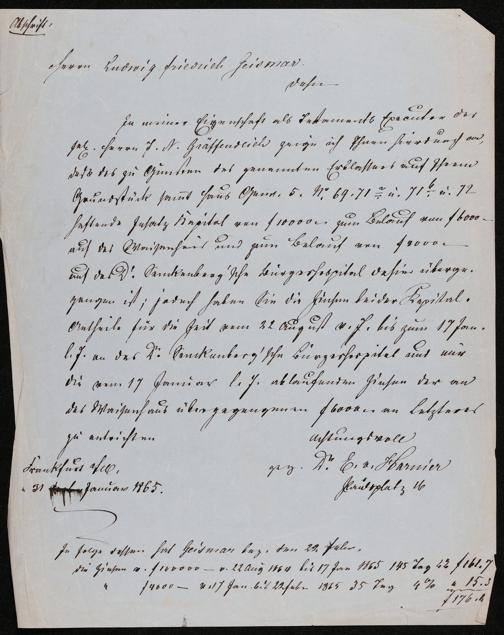 Abschrift.
Herrn Ludwig Friedrich Geismar
dahier
In meiner Eigenschaft als Testaments Executor des
sel. Herrn J. N. Gräffendeich zeige ich Ihnen hierdurch an,
daß das zu Gunsten des genannten Erblassers auf Ihrem
Grundstück sammt Haus 5. No 69. 71 a u. 71 b u. 72
haftende Insatz Kapital von f 10000 zum Belauf von f 6000
auf das Waisenhaus und zum Belauf von f 4000
auf das Dr. Senckenberg'sche Bürgerhospital dahier überge-
gangen ist; jedoch haben Sie die Zinsen beider Kapital-
Antheile für die Zeit vom 22 August v. J. bis zum 17 Jan.
l. J. an das Dr. Senckenberg'sche Bürgerhospital und nur
die vom 17 Januar l. J. ablaufenden Zinsen der an
das Waisenhaus übergegangenen f 6000 an Letzteres
zu entrichten
Achtungsvoll
Frankfurt a/M. gez. Dr. E. v. Harnier
31 Januar 1865. Paulsplatz 16
In Folge dessen hat Geismar bez. den 22. Febr.
die Zinsen v. f 10000 v. 22 Aug 1864 bis 17 Jan 1865 145 Tag
f 4000 v. 17 Jan. bis 22 Febr 1865 35 Tag 4% 15.
f 176.